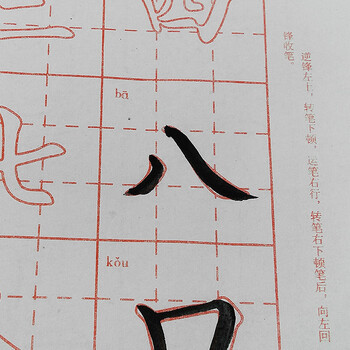 bā
八
kǒu
口
逆锋左上，转笔下顿，运笔右行，转笔右下顿笔后，向左回
锋收笔。